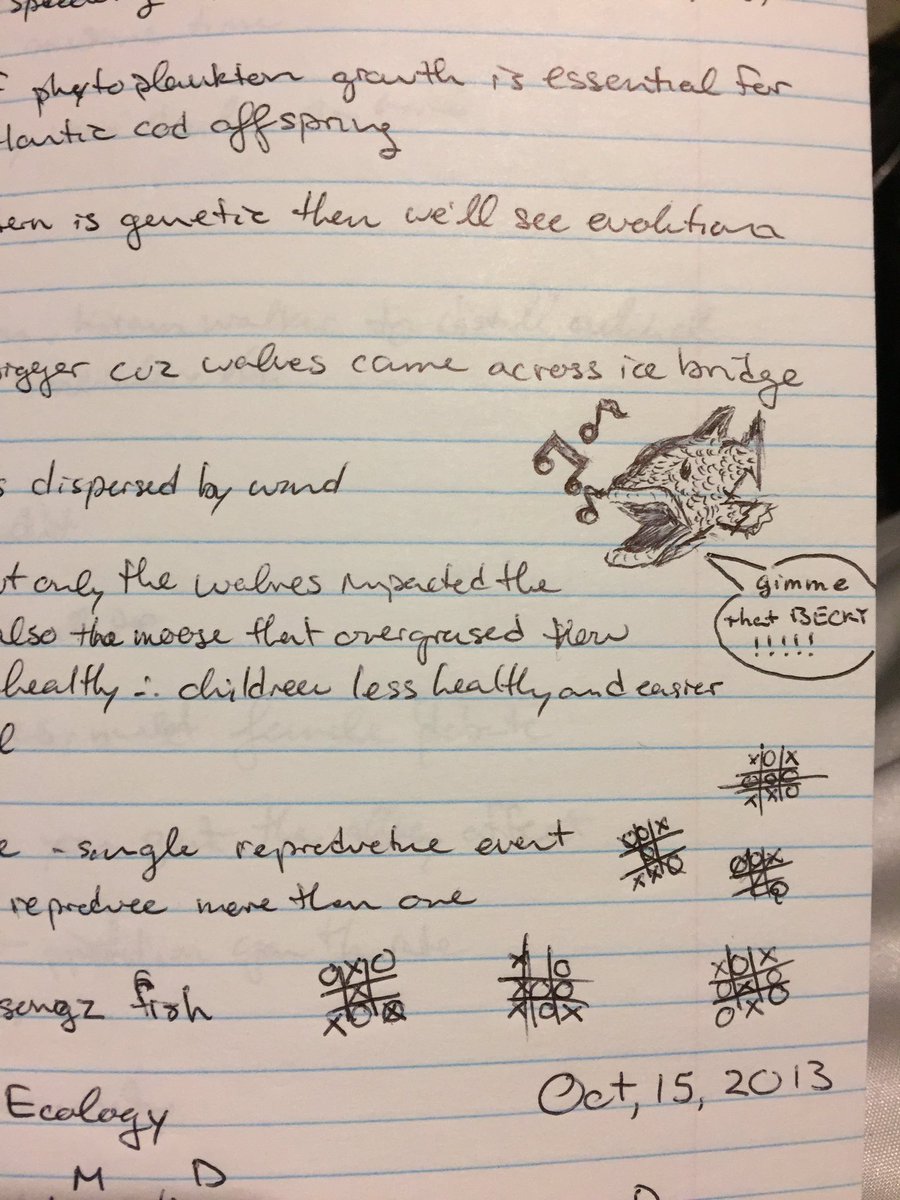 phytoplankton growth is essential for
lantic cod offspring
ern is genetic then we'll see evolution
igger cuz wolves came across ice bridge
s dispersed by wind
gimme
that BECKY
!!!!!
t only the wolves impacted the
also the moose that overgrased
healthy ∴ children less healthy and easier
e - single reproductive event
reproduce more than one
X O X
X X O
fish
O X O
X
X O
X
O
X O O
X O X
X O X
O X O
O X O
Ecology
Oct, 15, 2013
M D